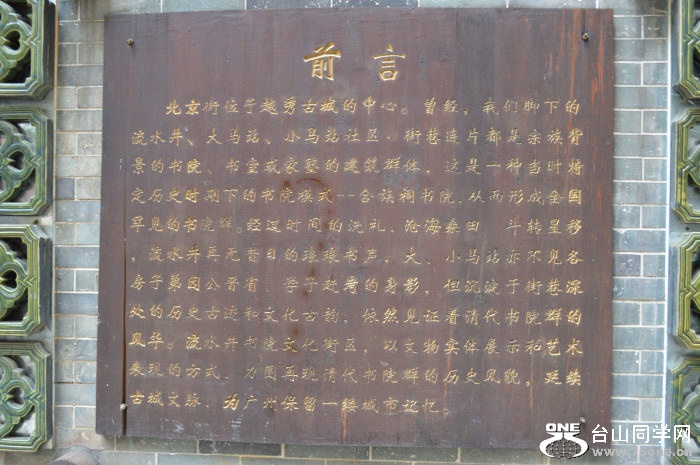 前言
北京街位于越秀古城的中心。曾经，我们脚下的
流水井、大马站、小马站社区，街巷连片都是宗族背
景的书院、书室或家塾的建筑群体，这是一种当时特
定历史时期下的书院模式--合族祠书院，从而形成全国
罕见的书院群。经过时间的洗礼，沧海桑田 斗转星移
，流水井再无昔日的琅琅书声，大、小马站亦不见各
房子弟因公晋省、学子赶考的身影，但沉淀于街巷深
处的历史古迹和文化古韵，依然见证着清代书院群的
风华。流水井书院文化街区，以文物实体展示和艺术
表现的方式，力图再现清代书院群的历史风貌，延续
古城文脉，为广州保留一缕城市记忆。
ONE
台山同学网
www.75one.cn